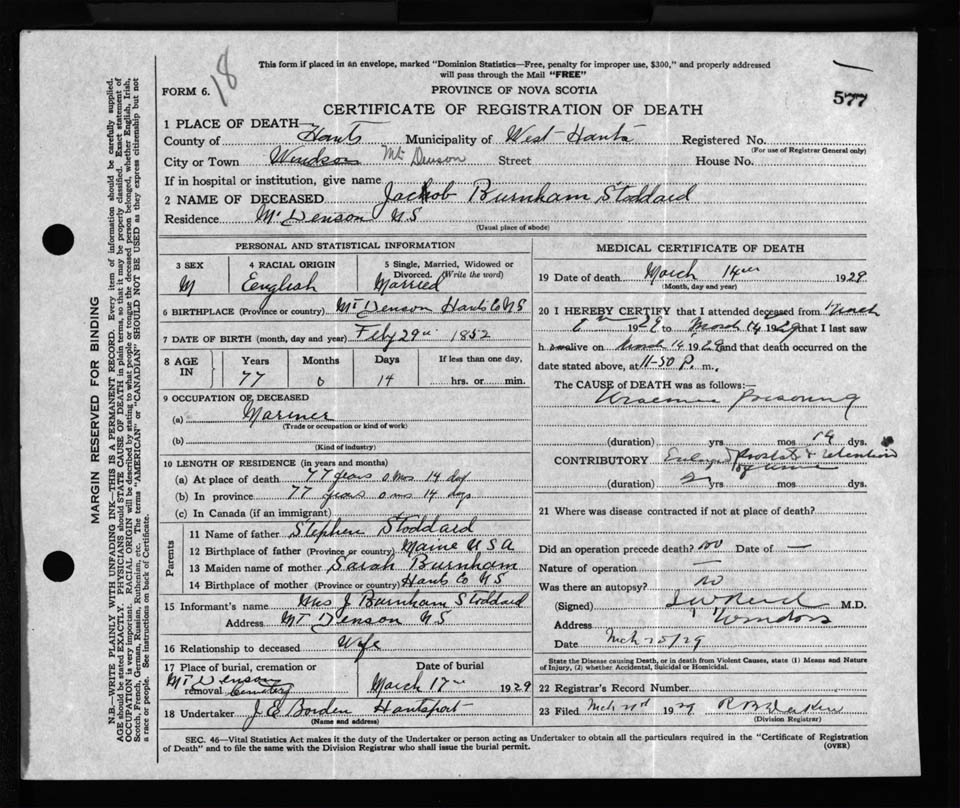 18
This form if placed in an envelope, marked "Dominion Statistics—Free, penalty for improper use, $300," and properly addressed
will pass through the Mail "FREE"
FORM 6.
PROVINCE OF NOVA SCOTIA
577
CERTIFICATE OF REGISTRATION OF DEATH
1 PLACE OF DEATH—
County of Hants Municipality of West Hants Registered No.
(For use of Registrar General only)
City or Town Windsor Mt Denson Street House No.
If in hospital or institution, give name
2 NAME OF DECEASED Jacob Burnham Stoddard
Residence Mt Denson NS
(Usual place of abode)
PERSONAL AND STATISTICAL INFORMATION
3 SEX 4 RACIAL ORIGIN 5 Single, Married, Widowed or
Divorced. (Write the word)
M English Married
6 BIRTHPLACE (Province or country) Mt Denson Hants Co NS
7 DATE OF BIRTH (month, day and year) Feby 29th 1852
8 AGE IN Years Months Days If less than one day,
77 0 14 hrs. or min.
9 OCCUPATION OF DECEASED
(a) Mariner
(Trade or occupation or kind of work)
(b)
(Kind of industry)
10 LENGTH OF RESIDENCE (in years and months)
(a) At place of death 77 years 0 mos 14 dys
(b) In province 77 years 0 ms 14 dys
(c) In Canada (if an immigrant)
Parents
11 Name of father Stephen Stoddard
12 Birthplace of father (Province or country) Maine USA
13 Maiden name of mother Sarah Burnham
14 Birthplace of mother (Province or country) Hants Co NS
15 Informant's name Mrs J Burnham Stoddard
Address Mt Denson NS
16 Relationship to deceased Wife
17 Place of burial, cremation or Date of burial
Mt Denson
removal Cemetery March 17th 1929
18 Undertaker J E Borden Hantsport
(Name and address)
MEDICAL CERTIFICATE OF DEATH
19 Date of death March 14th 1929
(Month, day and year)
20 I HEREBY CERTIFY that I attended deceased from March
1929 to March 14 1929 that I last saw
h alive on March 14 1929 and that death occurred on the
date stated above, at 11-30 P. m.
The CAUSE OF DEATH was as follows:—
Uraemic poisoning
(duration) yrs mos 14 dys.
CONTRIBUTORY Enlarged prostate & retention
of urine
(duration) 2 yrs mos dys.
21 Where was disease contracted if not at place of death?
Did an operation precede death? no Date of —
Nature of operation —
Was there an autopsy? no
(Signed) M.D.
Address Windsor
Date Mch 20/29
State the Disease causing Death, or in death from Violent Causes, state (1) Means and Nature
of Injury, (2) whether Accidental, Suicidal or Homicidal.
22 Registrar's Record Number
23 Filed 1929
(Division Registrar)
SEC. 46—Vital Statistics Act makes it the duty of the Undertaker or person acting as Undertaker to obtain all the particulars required in the "Certificate of Registration
of Death" and to file the same with the Division Registrar who shall issue the burial permit.
(OVER)
MARGIN RESERVED FOR BINDING
N.B.—WRITE PLAINLY WITH UNFADING INK—THIS IS A PERMANENT RECORD. Every item of information should be carefully supplied.
AGE should be stated EXACTLY. PHYSICIANS should STATE CAUSE OF DEATH in plain terms, so that it may be properly classified. Exact statement of
OCCUPATION is very important. RACIAL ORIGIN will be described by stating to what people or tongue the deceased person belonged, whether English, Irish,
Scotch, French, German, Russian, Ruthenian, etc. The terms "AMERICAN" or "CANADIAN" SHOULD NOT BE USED as they express citizenship but not
a race or people. See instructions on back of Certificate.